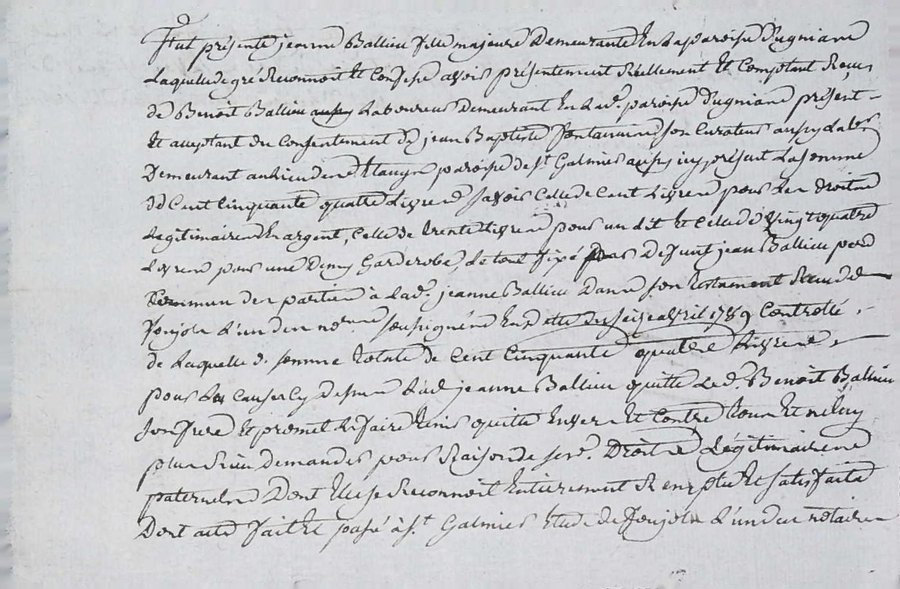 Fut présente jeanne Ballieu fille majeure Demeurante En la paroisse D'ugniane
Laquelle de gré Reconnoit Et Confesse avoir présentement Réellement Et Comptant Reçu
de Benoit Ballieu aussy Laboureur Demeurant En lad. paroisse D'ugniane présent
Et acceptant du Consentement de jean Baptiste son Curateur aussy Labr
Demeurant au lieu des paroisse de St Galmier aussy icy présent La somme
de Cent Cinquante quatre Livres Savoir Celle de Cent Livres pour les Droits
Légitimaires En argent, Celle de trente Livres pour un Lit et Celle de Vingt quatre
Livres pour une Demy Garderobe, Le tout fixé par Defunt jean Ballieu père
Commun des parties à Lad. jeanne Ballieu Dans son testament Reçu de
L'un des nres soussignés En datte du Seize avril 1789 Controllé
de Laquelle d. somme totale de Cent Cinquante quatre Livres
pour Les Causes Cy dessus Lad. jeanne Ballieu quitte Led. Benoit Ballieu
Son frere Et promet Le faire tenir quitte Envers Et Contre tous Et ne luy
plus Rien Demander pour Raison de ses d. Droits Légitimaires
paternels Dont Elle se Reconnoit Entierement Remplie Et satisfaite
Dont acte fait Et passé à St Galmier Etude de L'un des notaires